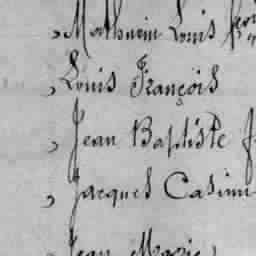 , Mathurin Louis
, Louis François
, Jean Baptiste
, Jacques Casimi
Jean Marie